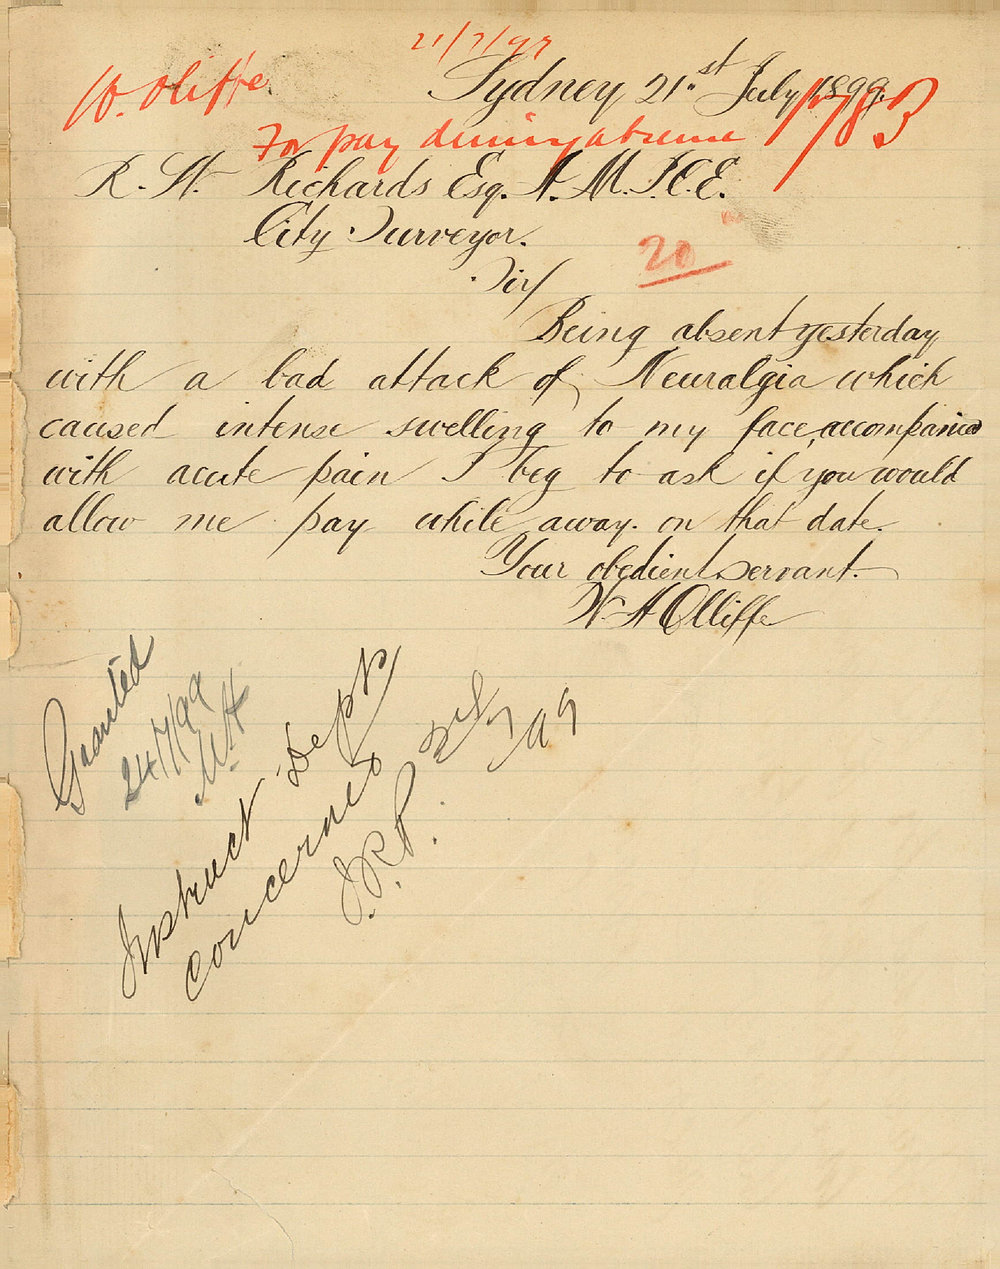 21/7/99
W. Oliffe
Sydney 21st July 1899.
1783
For pay during absence
R. W. Richards Esq. A. M. I. C. E.
City Surveyor.
20
Sir/
Being absent yesterday
with a bad attack of Neuralgia which
caused intense swelling to my face, accompanied
with acute pain I beg to ask if you would
allow me pay while away. on that date.
Your obedient servant.
W A Olliffe
Granted
24/7/99
Instruct Depts
concerned